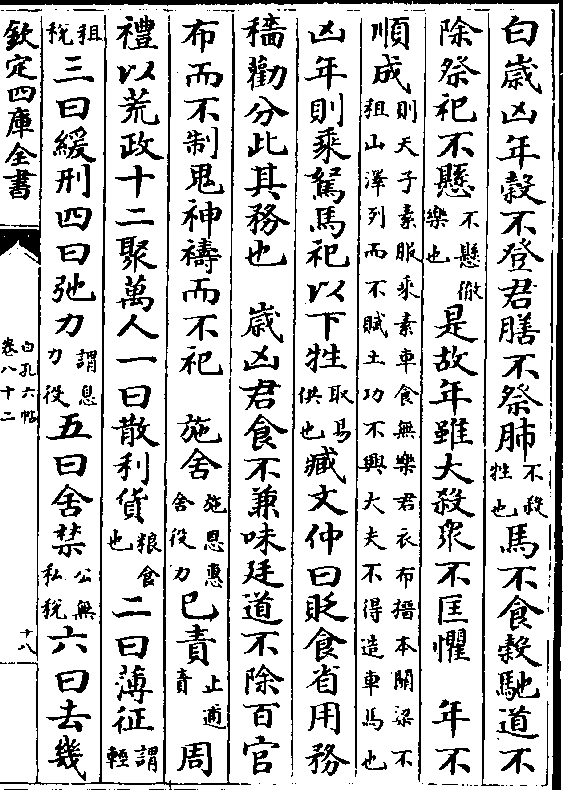 白歲凶年穀不登君膳不祭肺不殺牲也馬不食穀馳道不
除祭祀不懸不懸徹樂也是故年雖大殺衆不匡懼　年不
順成則天子素服乘素車食無樂君衣布搢本關梁不租山澤列而不賦土功不興大夫不得造車馬也
凶年則乘駑馬祀以下牲取易供也臧文仲曰貶食省用務
穡勸分此其務也　歲凶君食不兼味廷道不除百官
布而不制鬼神禱而不祀　施舍施恩惠舍役力已責止逋責周
禮以荒政十二聚萬人一曰散利貨粮食也二曰薄征謂輕
租稅三曰緩刑四曰弛力謂息力役五曰舍禁公無私稅六曰去幾
欽定四庫全書
白孔六帖
卷八十二
十八